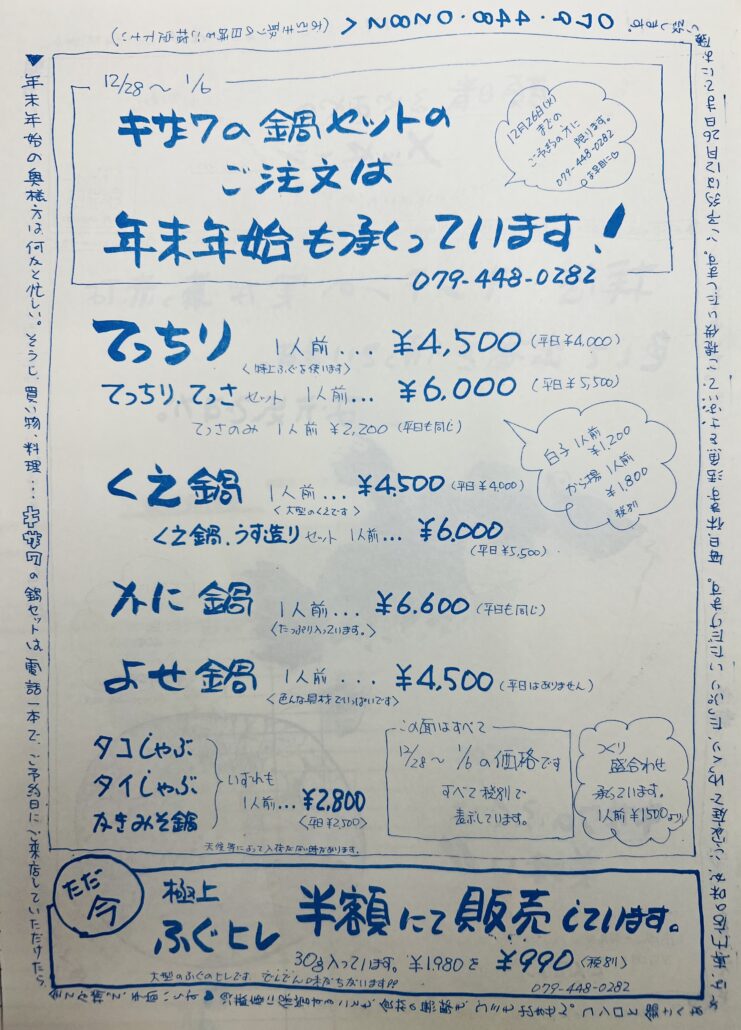 079・448・0282
12/28～1/6
キサワの鍋セットの
ご注文は
年末年始も承っています!
079-448-0282
12月26日(火)
までの
ご予約の方に
限ります。
079-448-0282
お早目に♡
てっちり 1人前... ¥4,500 (平日¥4,000)
〈特上ふぐを使います〉
てっちり、てっさ セット 1人前... ¥6,000 (平日¥5,500)
てっさのみ 1人前 ¥2,200 (平日も同じ)
白子 1人前
¥1,200
から揚 1人前
¥1,800
税別
くえ鍋 1人前... ¥4,500 (平日¥4,000)
〈大型のくえです〉
くえ鍋、うす造り セット 1人前... ¥6,000
(平日¥5,500)
かに鍋 1人前... ¥6,600 (平日も同じ)
〈たっぷり入っています。〉
よせ鍋 1人前... ¥4,500 (平日はありません)
〈色んな具材でいっぱいです〉
タコしゃぶ
タイしゃぶ
かきみそ鍋
いずれも
1人前... ¥2,800
〈平日¥2,500〉
天候等によって入荷がない時があります。
この面はすべて
12/28～1/6の価格です
すべて税別で
表示しています。
盛合わせ
承っています。
1人前¥1500より
ただ今
極上
ふぐヒレ 半額にて販売しています。
30g入っています。 ¥1,980を ¥990 (税別)
大型のふぐのヒレです。
079-448-0282
▼年末年始の奥様方は、何かと忙しい。そうじ、買い物、料理...キサワの鍋セットは、電話一本で、ご予約日にご来店していただけたら